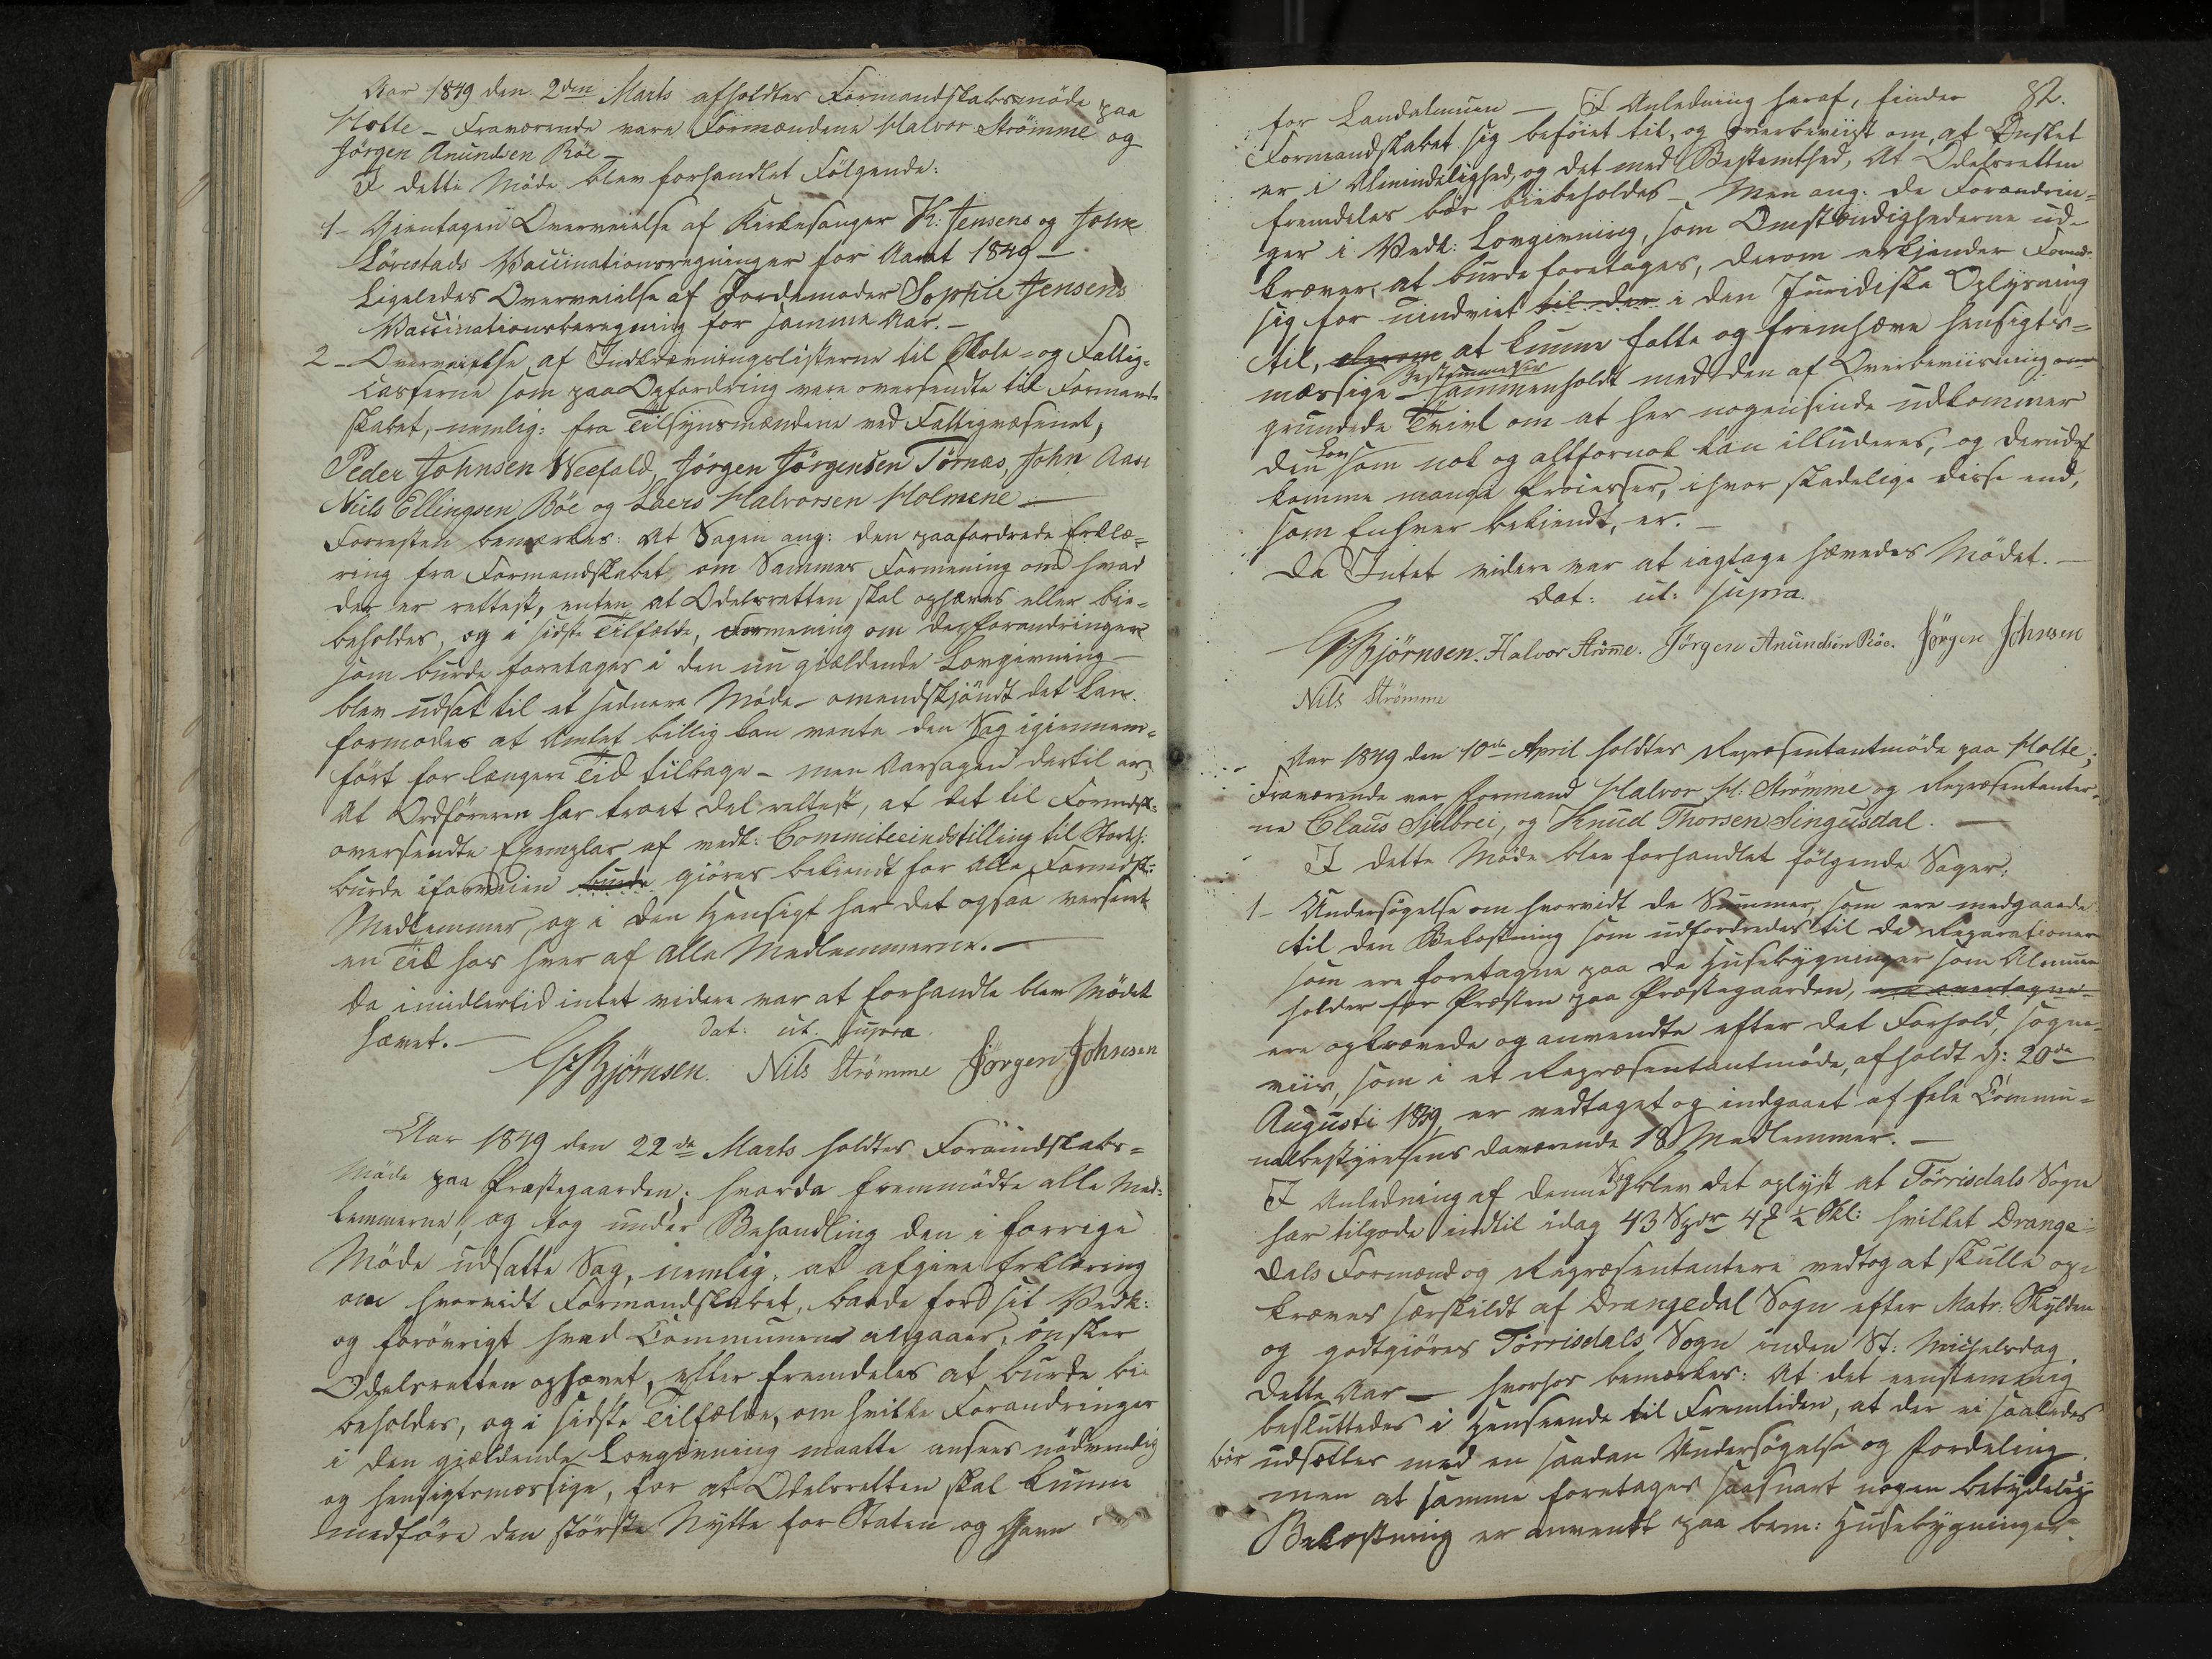 Aar 1849 den 2den Marts afholdtes Formandskabsmöde paa
Holte – Fraværende vare Formændene Halvor Strömme og
Jörgen Anundsen Röe –
I dette Möde blev forhandlet Fölgende:
1 – Gientagen Overveielse af Kirkesanger K: Jensens og John
Lönstads Vaccinationsregninger for Aaret 1849 –
Ligeledes Overveielse af Jordemoder Sophie Jensens
Vaccinationsberegning for samme Aar. –
2 – Overveielse af Indkrævningslisterne til Skole- og Fattig-
Casserne som paa Opfordring vare oversendte til Formand-
skabet, nemlig: fra Tilsynsmændene ved Fattigvæsenet,
Peder Johnsen Weefald, Jörgen Jörgensen Törnæs, John Aase
Niels Ellingsen Böe og Laers Halvorsen Holmene –
Forresten bemærkes: At Sagen ang: den paafordrede Erklæ-
ring fra Formandskabet, om Sammes Formening om hvad
der er rettest, enten at Odelsretten skal ophæves eller bie-
beholdes, og i sidste Tilfælde, Formening om de forandringer
som burde foretages i den nu giældende Lovgivning –
blev udsat til et sednere Möde – omendskjöndt det kan
formodes at Amtet billig kan vente den Sag igiennem-
fört for længere Tid tilbage – men Aarsagen dertil er,
At Ordföreren har troet det rettest, at det til Formdsk:
oversendte Exemplar af vedk: Commiteeindstilling til Storth:
burde iforveien burde giöres bekiendt for alle Formdsk:
Medlemmer, og i den Hensigt har det ogsaa verseret
en Tid hos hver af alle Medlemmerne. –
Da imidlertid intet videre var at forhandle blev Mödet
hævet. – Dat: ut. supra.
Bjørnsen. Nils Strömme Jörgen Johnsen
Aar 1849 den 22de Marts holdtes Formandskabs-
Möde paa Præstegaarden; hvorda fremmödte alle Med-
lemmerne, og tog under Behandling den i forrige
Möde udsatte Sag, nemlig: at afgive Erklæring
om hvorvidt Formandskabet, baade for sit Vedk:
og forövrigt hvad Communen angaaer, önsker
Odelsretten ophævet, eller fremdeles at burde bi-
beholdes, og i sidste Tilfælde, om hvilke Forandringer
i den gjældende Lovgivning maatte ansees nödvendig
og hensigtsmæssige, for at Odelsretten skal kunne
medföre den störste Nytte for Staten og Gavn
82.
for Landalmuen – I Anledning heraf, finder
Formandskabet sig beföiet til, og overbeviist om, at Önsket
er i Almindelighed, og det med Bestemthed, At Odelsretten
fremdeles bör biebeholdes – Men ang: de Forandrin-
ger i Vedk: Lovgivning, som Omstændighederne ud-
kræver, at burde foretages, derom erkjender Formd:
sig for uindviet til der i den Juridiske Oplysning
til, derom at kunne fatte og fremhæve hensigts-
mæssige Bestemmelser – sammenholdt med den af Overbeviisning om
grundede Tvivl om at her nogensinde udkommer
den Lov som nok og altfornok kan illuderes, og derudaf
komme mange Processer, ihvor skadelige disse end,
som Enhver bekiendt, er. –
Da Intet videre var at iagtage hævedes Mödet. –
Dat: ut: supra.
Bjørnsen. Halvor Strömme. Jörgen Anundsen Röe. Jörgen Johnsen
Nils Strömme
Aar 1849 den 10de April holdtes Repræsentantmöde paa Holte;
Fraværende var Formand Halvor H: Strömme og Repræsentanter-
ne Claus Sjelbrei, og Knud Thorsen Singusdal. –
I dette Möde blev forhandlet fölgende Sager:
1 – Undersögelse om hvorvidt de Summer, som ere medgaaede
til den Bekostning som udfordredes til de Reparationer
som ere foretagne paa de Husebygninger som Almuen
holder for Præsten paa Præstegaarden,
ere opkrævede og anvendte efter det Forhold, sogne-
viis, som i et Repræsentantmöde, afholdt d: 20de
Augusti 1839, er vedtaget og indgaaet af hele Commu-
nalbestyrelsens daværende 18 Medlemmer. –
I Anledning af denne Sag blev det oplyst at Törrisdals Sogn
har tilgode indtil idag 43 Spdr 47 ½ Skl: hvilket Drange-
dals Formænd og Repræsentantere vedtog at skulle op-
kræves særskildt af Drangedal Sogn efter Matr: Skylden
og godtgiöres Törrisdals Sogn inden St: Michelsdag
dette Aar – hvorhos bemærkes: At det eenstemmig
besluttedes i Henseende til Fremtiden, at der ei saaledes
bör udsættes med en saadan Undersögelse og Fordeling
men at samme foretages saasnart nogen betydelig
Bekostning er anvendt paa bem: Husebygninger.